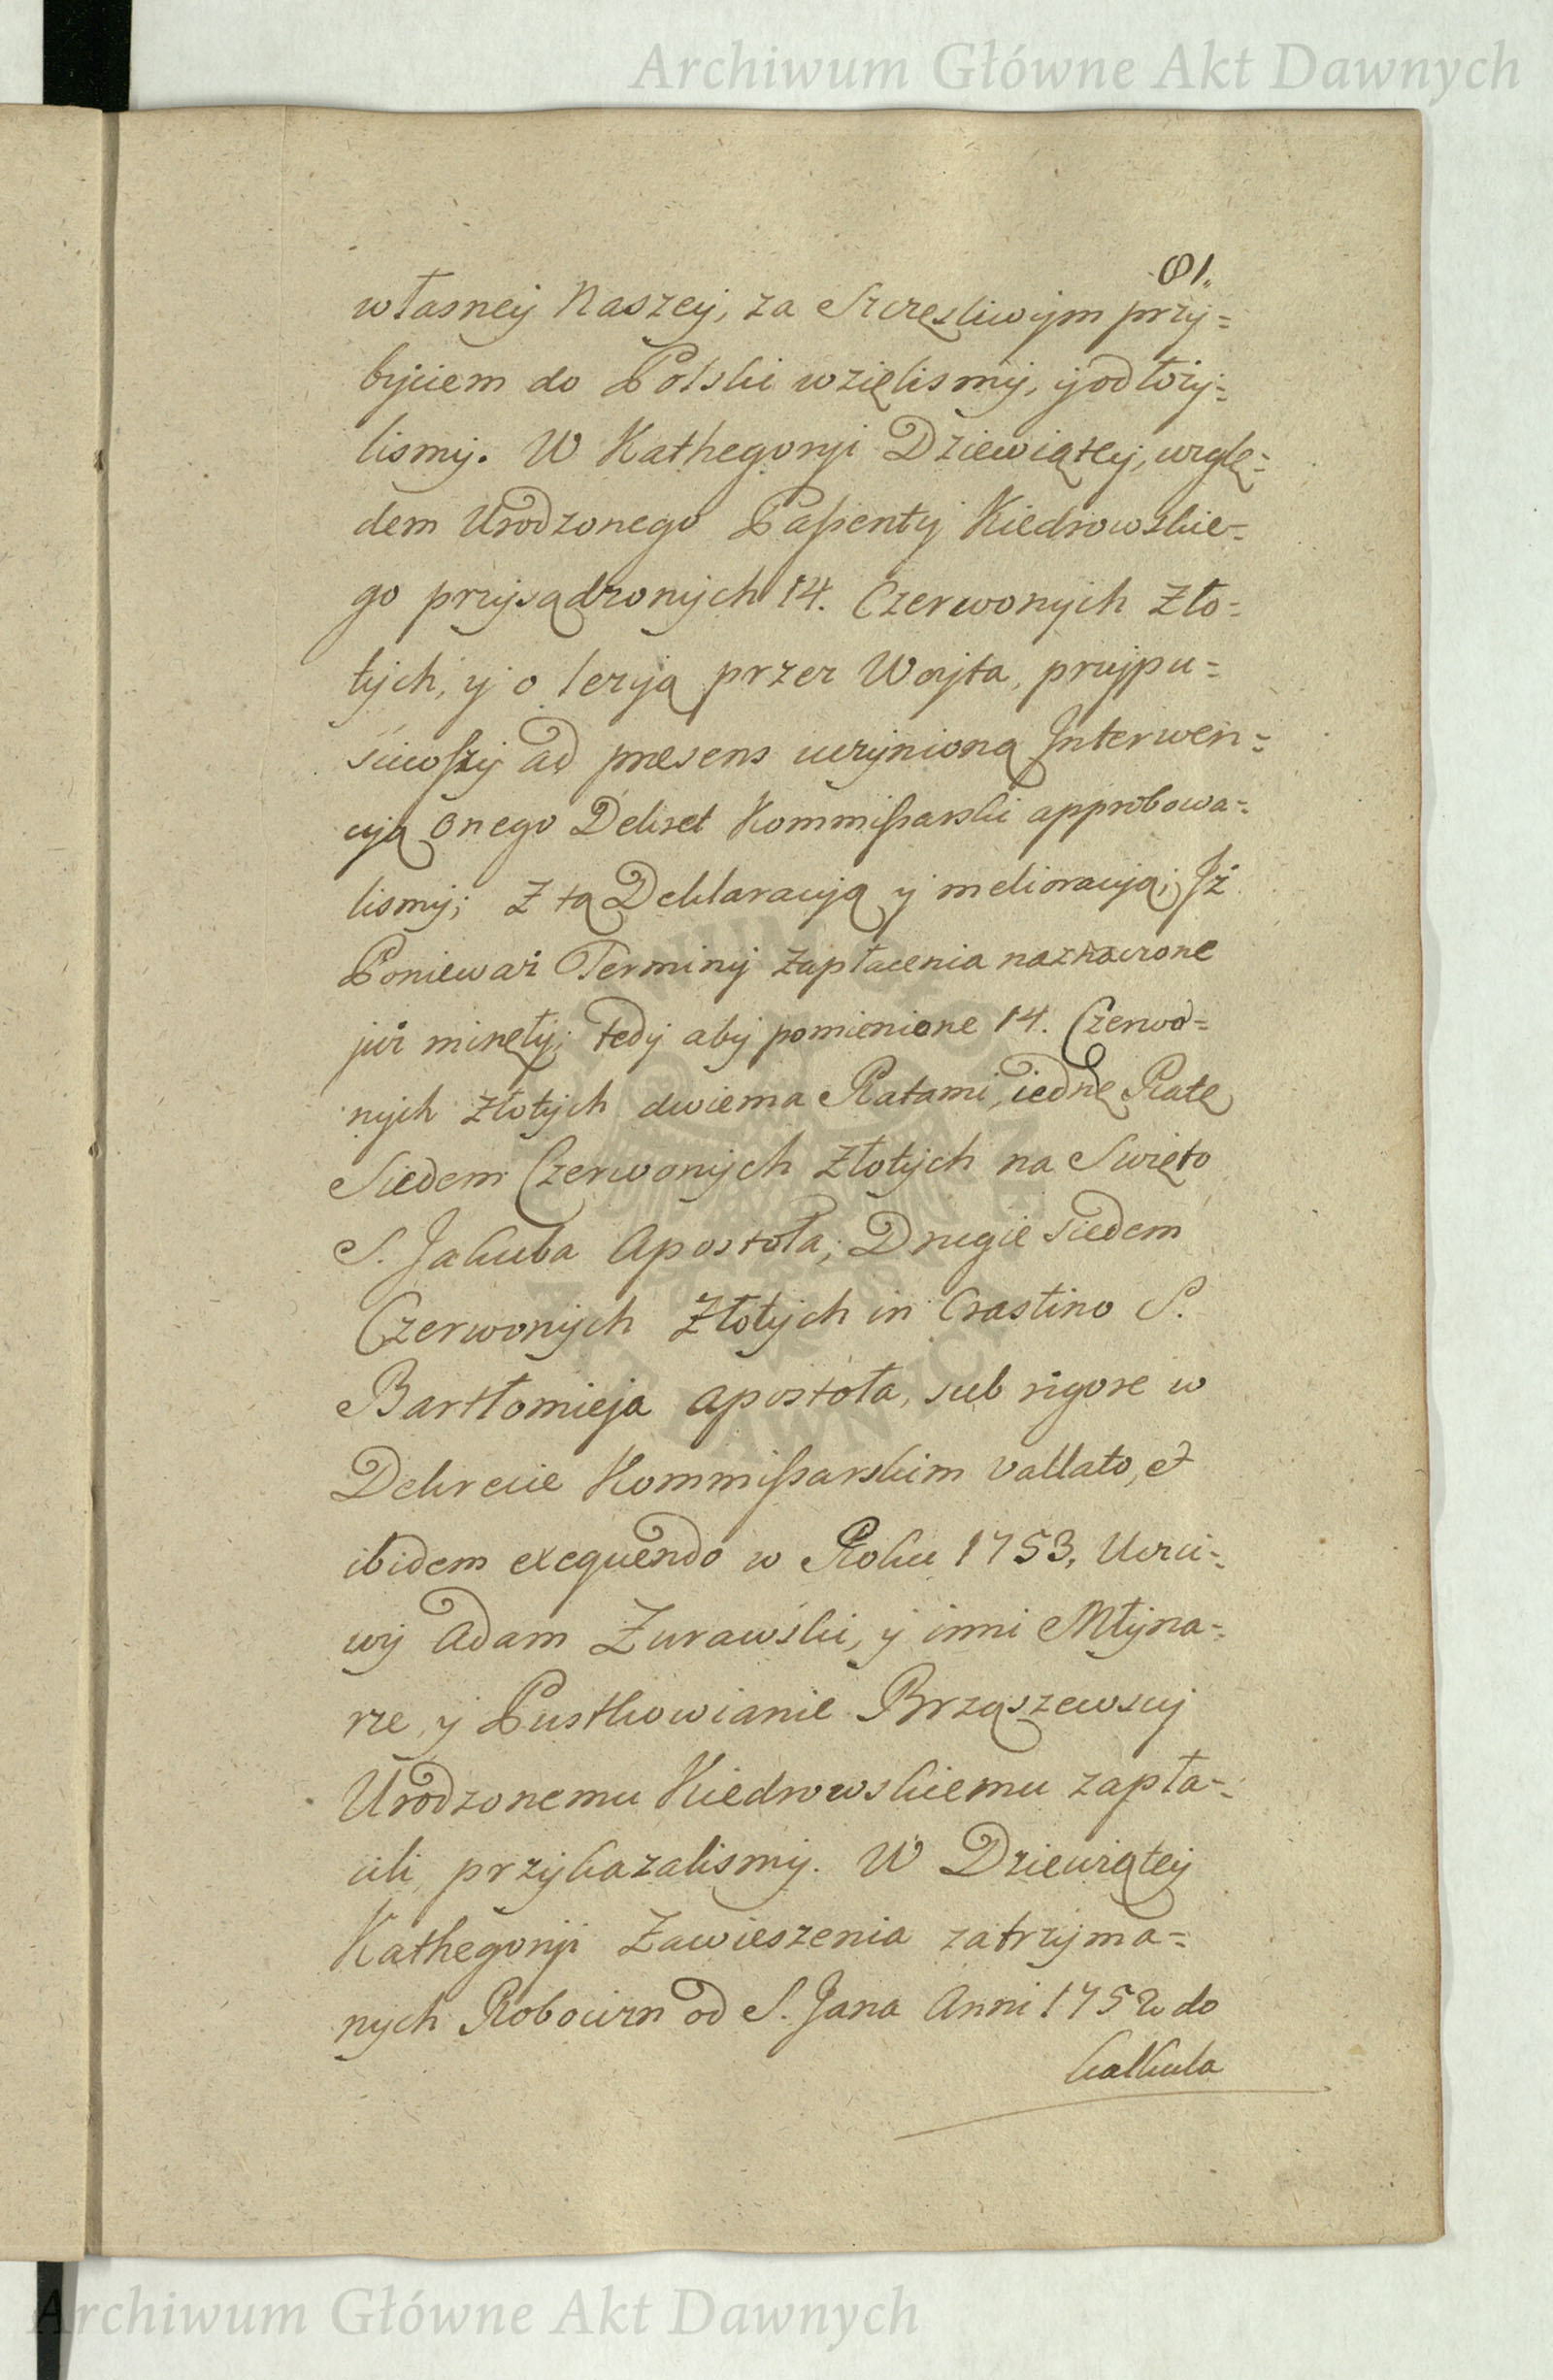 Archiwum Główne Akt Dawnych
81.
własney Naszey, za Szczęsliwym przy=
byciem do Polski wzielismy, y odłoży=
lismy. W Kathegoryi Dziewiątey, wzglę=
dem Urodzonego Kiedrowskie=
go przysądzonych 14. Czerwonych Zło=
tych, y o lezyą przez Woyta, przypu=
sciwszy ad presens uczynioną Interwen=
cyą onego Dekret Kommissarski approbowa=
lismy; Z tą Deklaracyą y melioracyą; Iż
Ponieważ Terminy zapłacenia naznaczone
już minęły; tedy aby pomienione 14. Czerwo=
nych złotych dwiema Ratami, iednę Ratę
Siedem Czerwonych Złotych na Swięto
S. Jakuba Apostoła; Drugie siedem
Czerwonych Złotych in Crastino S.
Bartłomieja Apostoła, sub rigore w
Dekrecie Kommissarskim vallato, et
ibidem exequendo w Roku 1753, Uczci=
wy Adam Zurawski, y inni Młyna=
rze, y Pustkowianie Brząszewscy
Urodzonemu Kiedrowskiemu zapła=
cili przykazalismy. W Dziewiątey
Kathegoryi Zawieszenia zatrzyma=
nych Robocizn od S. Jana Anni 1752 do
kalkula
Archiwum Główne Akt Dawnych